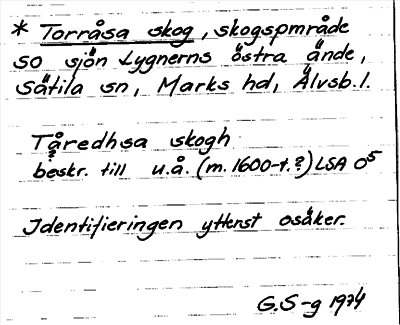 * Torråsa skog, skogspmråde
so sjön Lygnerns östra ände,
Sätila sn, Marks hd, Älvsb.l.
Tåredhsa skogh
?
beskr. till u.å. (m. 1600-t.?) LSA O5
Identifieringen ytterst osäker.
G.S-g 1974